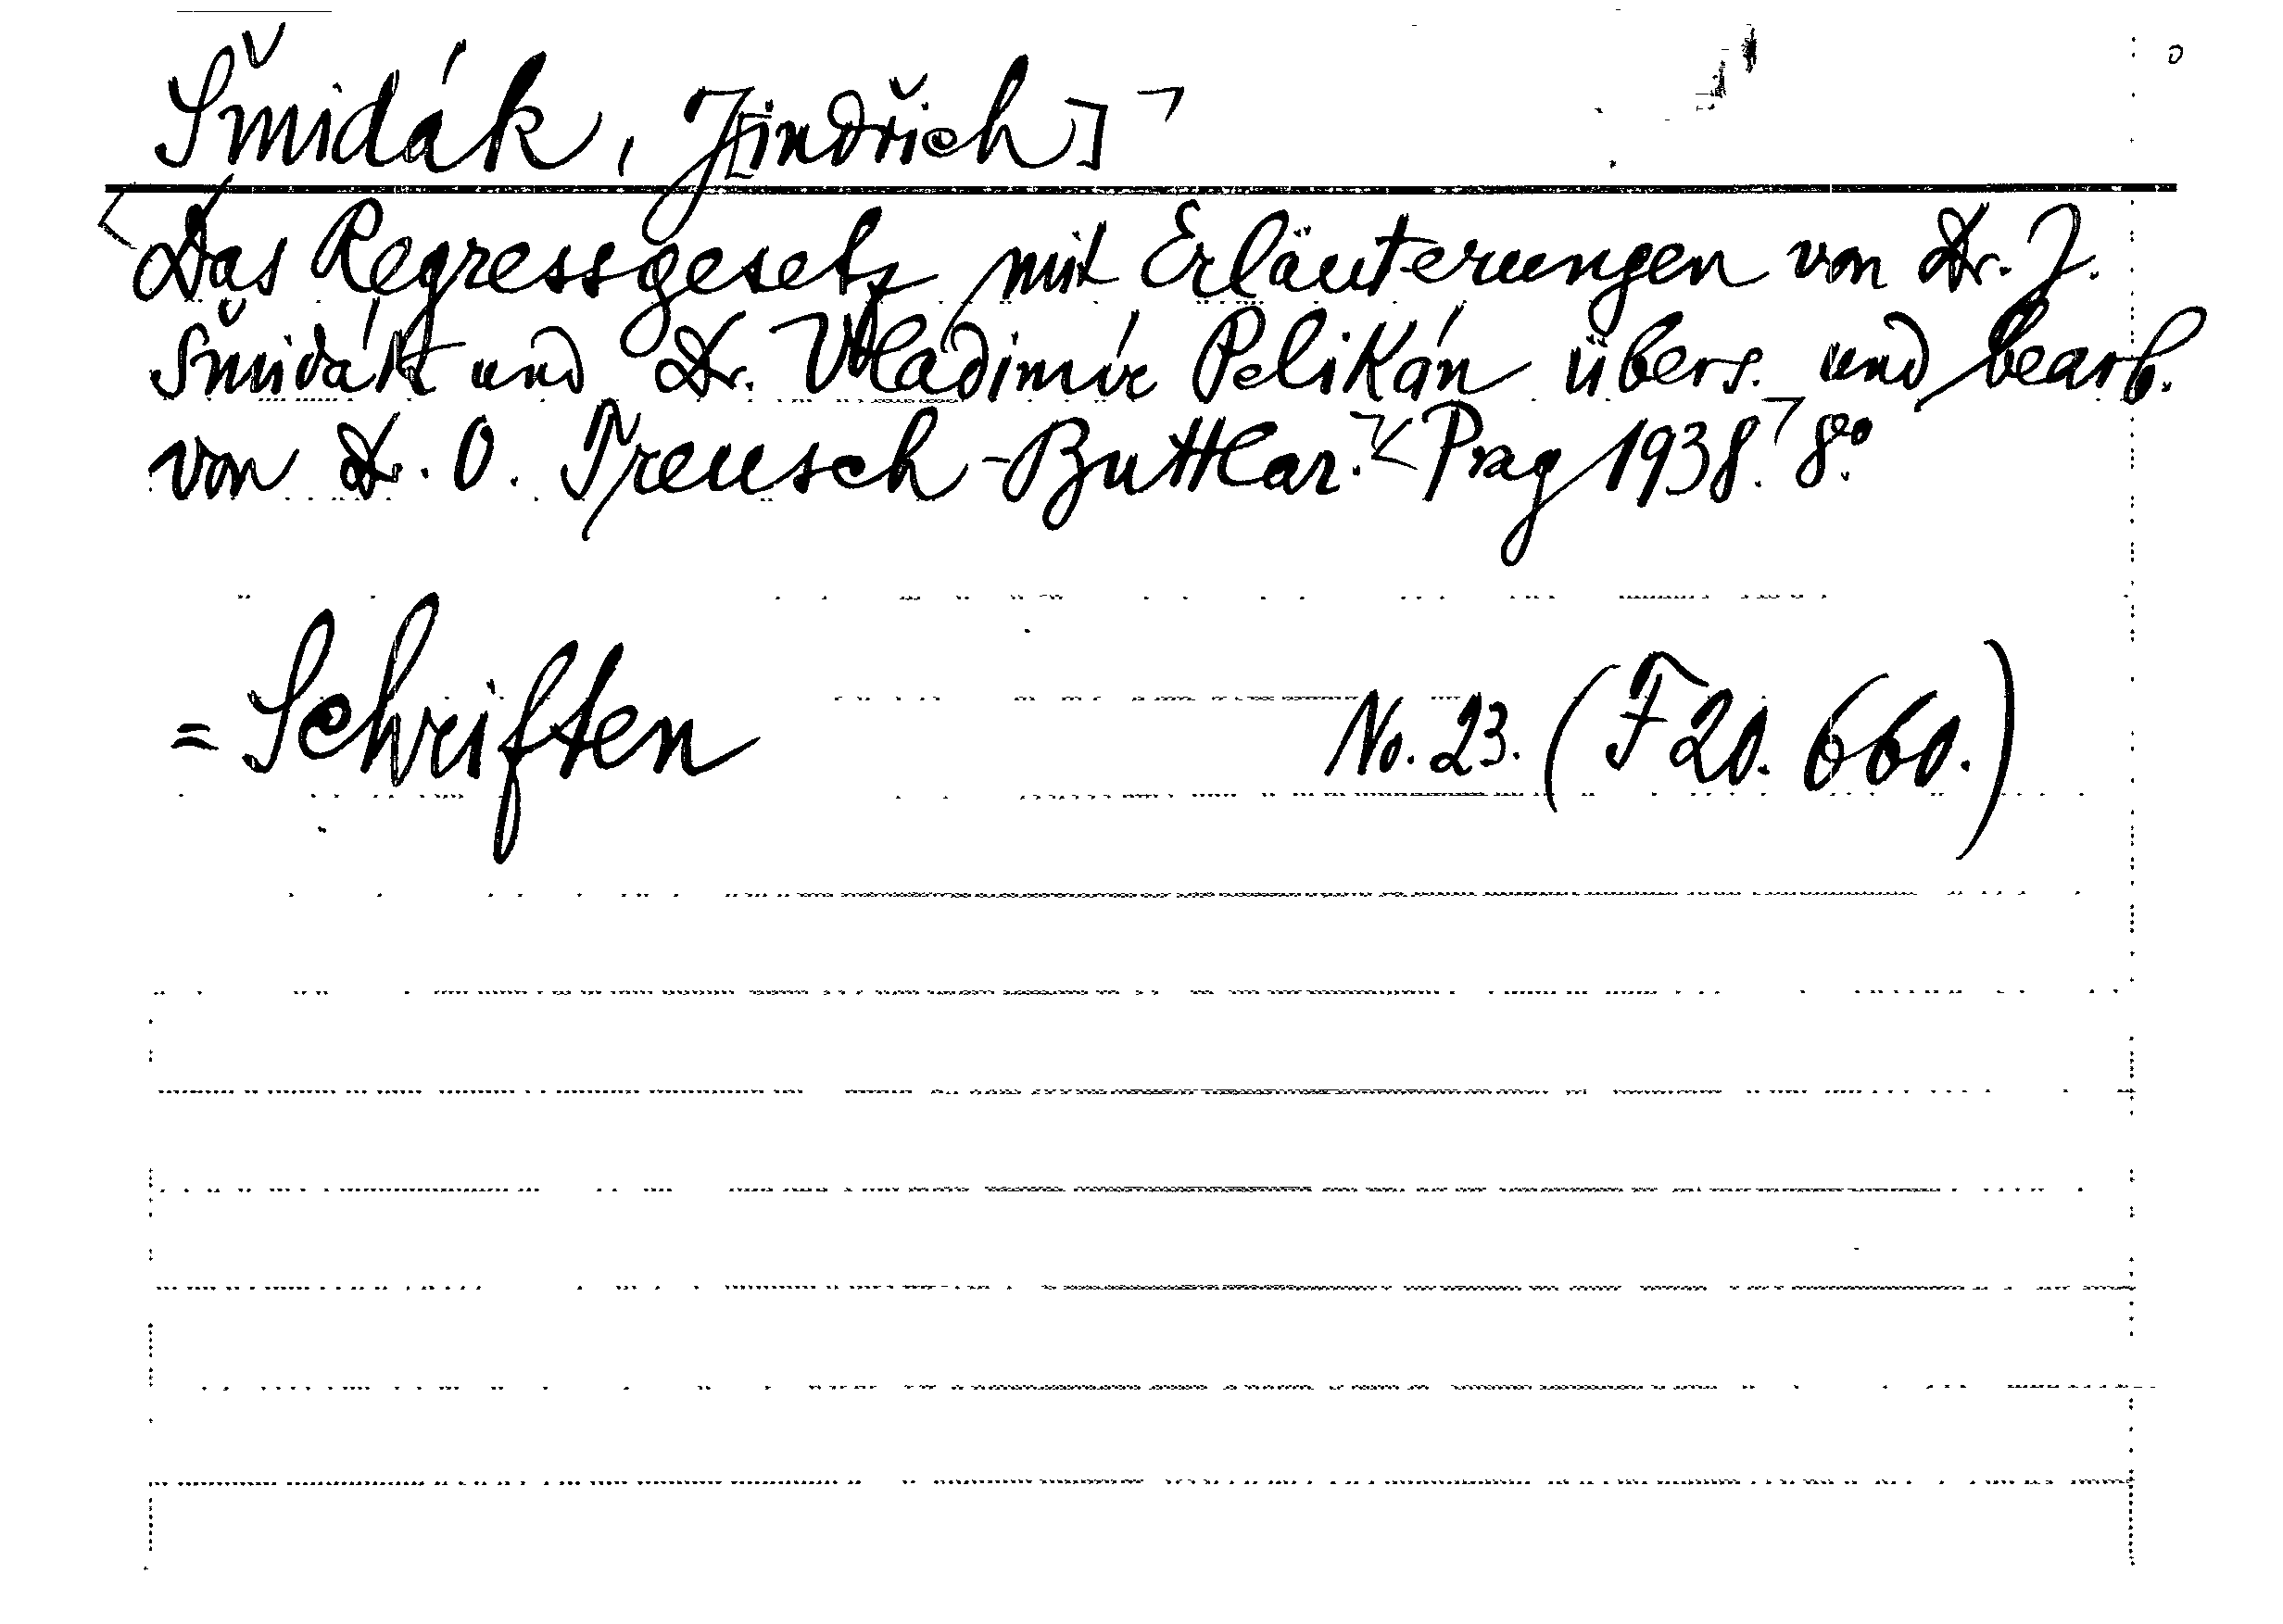 Šmidák, J[indřich]
Das Regressgesetz mit Erläuterungen von Dr. J.
Šmidák und Dr. Vladimír Pelikán übers. und bearb.
von Dr. O. Treusch-Buttlar. Prag 1938. 8°.
= Schriften No. 23. (F 20. 660.)